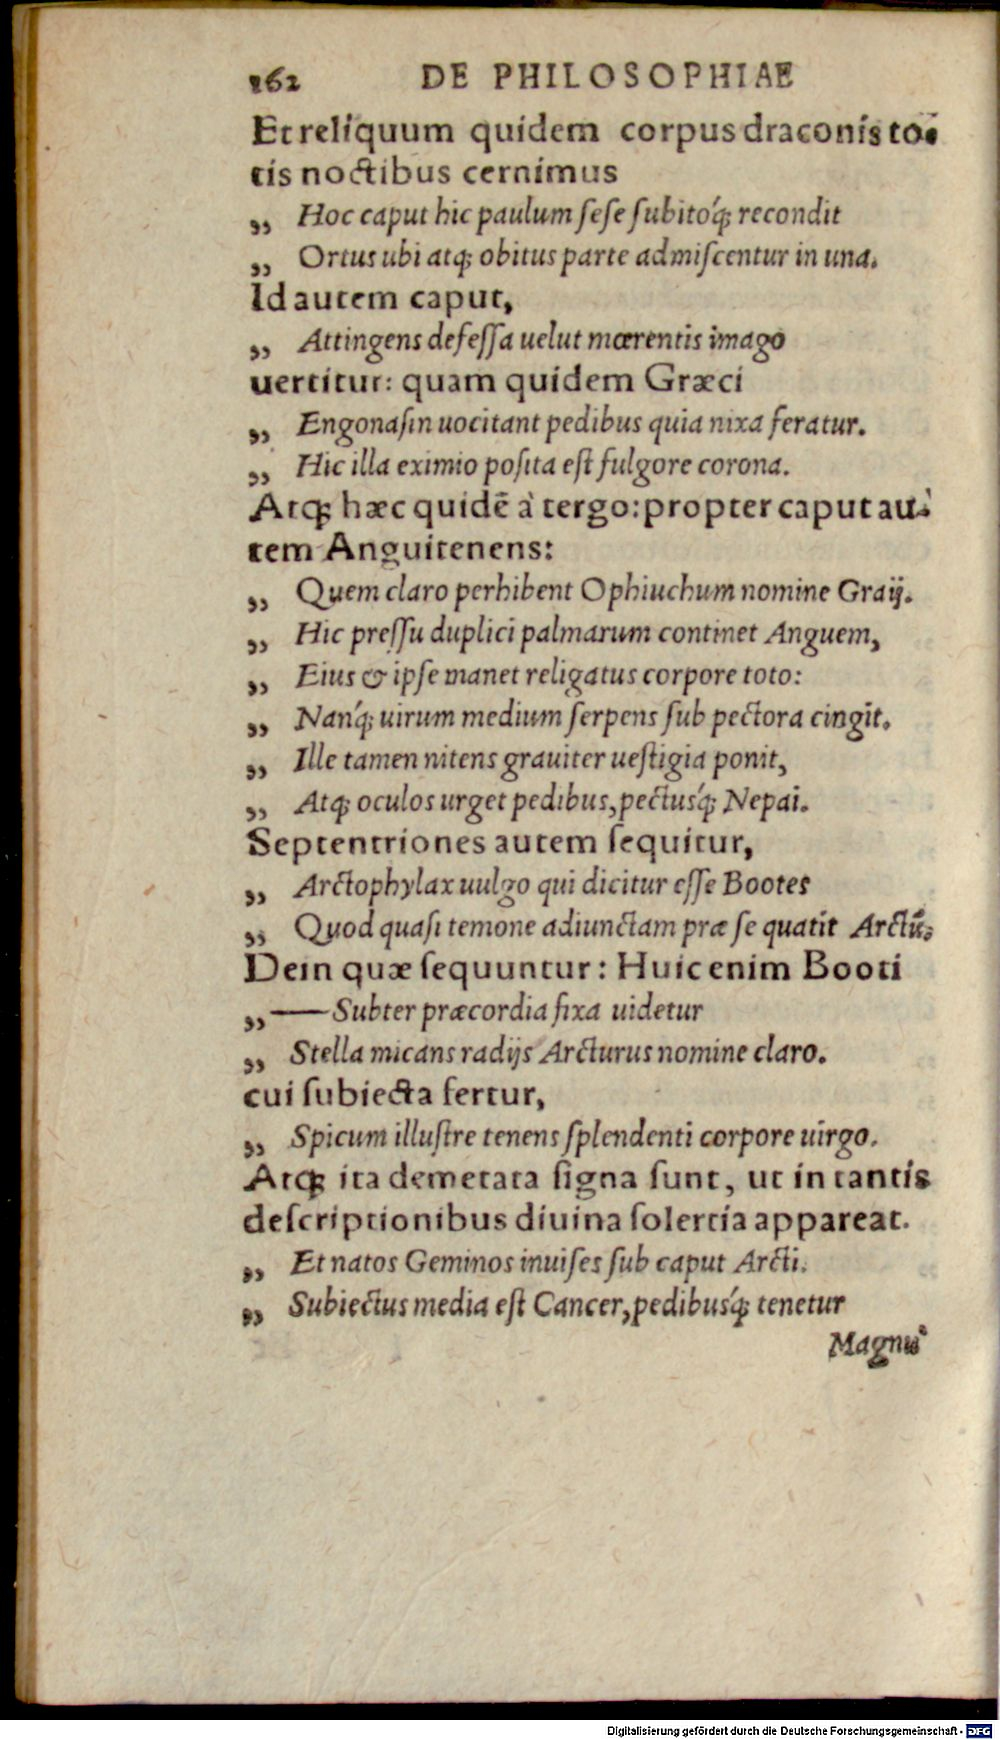 162 DE PHILOSOPHIAE
Et reliquum quidem corpus draconis to-
tis noctibus cernimus
„ Hoc caput hic paulum ſeſe ſubitoq́; recondit
„ Ortus ubi atq; obitus parte admiſcentur in una.
Id autem caput,
„ Attingens defeſſa uelut mœrentis imago
uertitur: quam quidem Græci
„ Engonaſin uocitant pedibus quia nixa feratur.
„ Hic illa eximio poſita eſt fulgore corona.
Atq; hæc quidē à tergo: propter caput au-
tem Anguitenens:
„ Quem claro perhibent Ophiuchum nomine Graij.
„ Hic preſſu duplici palmarum continet Anguem,
„ Eius & ipſe manet religatus corpore toto:
„ Nanq́; uirum medium ſerpens ſub pectora cingit.
„ Ille tamen nitens grauiter ueſtigia ponit,
„ Atq; oculos urget pedibus, pectusq́; Nepai.
Septentriones autem ſequitur,
„ Arctophylax uulgo qui dicitur eſſe Bootes
„ Quod quaſi temone adiunctam præ ſe quatit Arctū.
Dein quæ ſequuntur: Huic enim Booti
„ —— Subter præcordia fixa uidetur
„ Stella micans radijs Arcturus nomine claro.
cui ſubiecta fertur,
„ Spicum illuſtre tenens ſplendenti corpore uirgo.
Atq; ita demetata ſigna ſunt, ut in tantis
deſcriptionibus diuina ſolertia appareat.
„ Et natos Geminos inuiſes ſub caput Arcti.
„ Subiectus media eſt Cancer, pedibusq́; tenetur
Magnu'
Digitalisierung gefördert durch die Deutsche Forschungsgemeinschaft - DFG